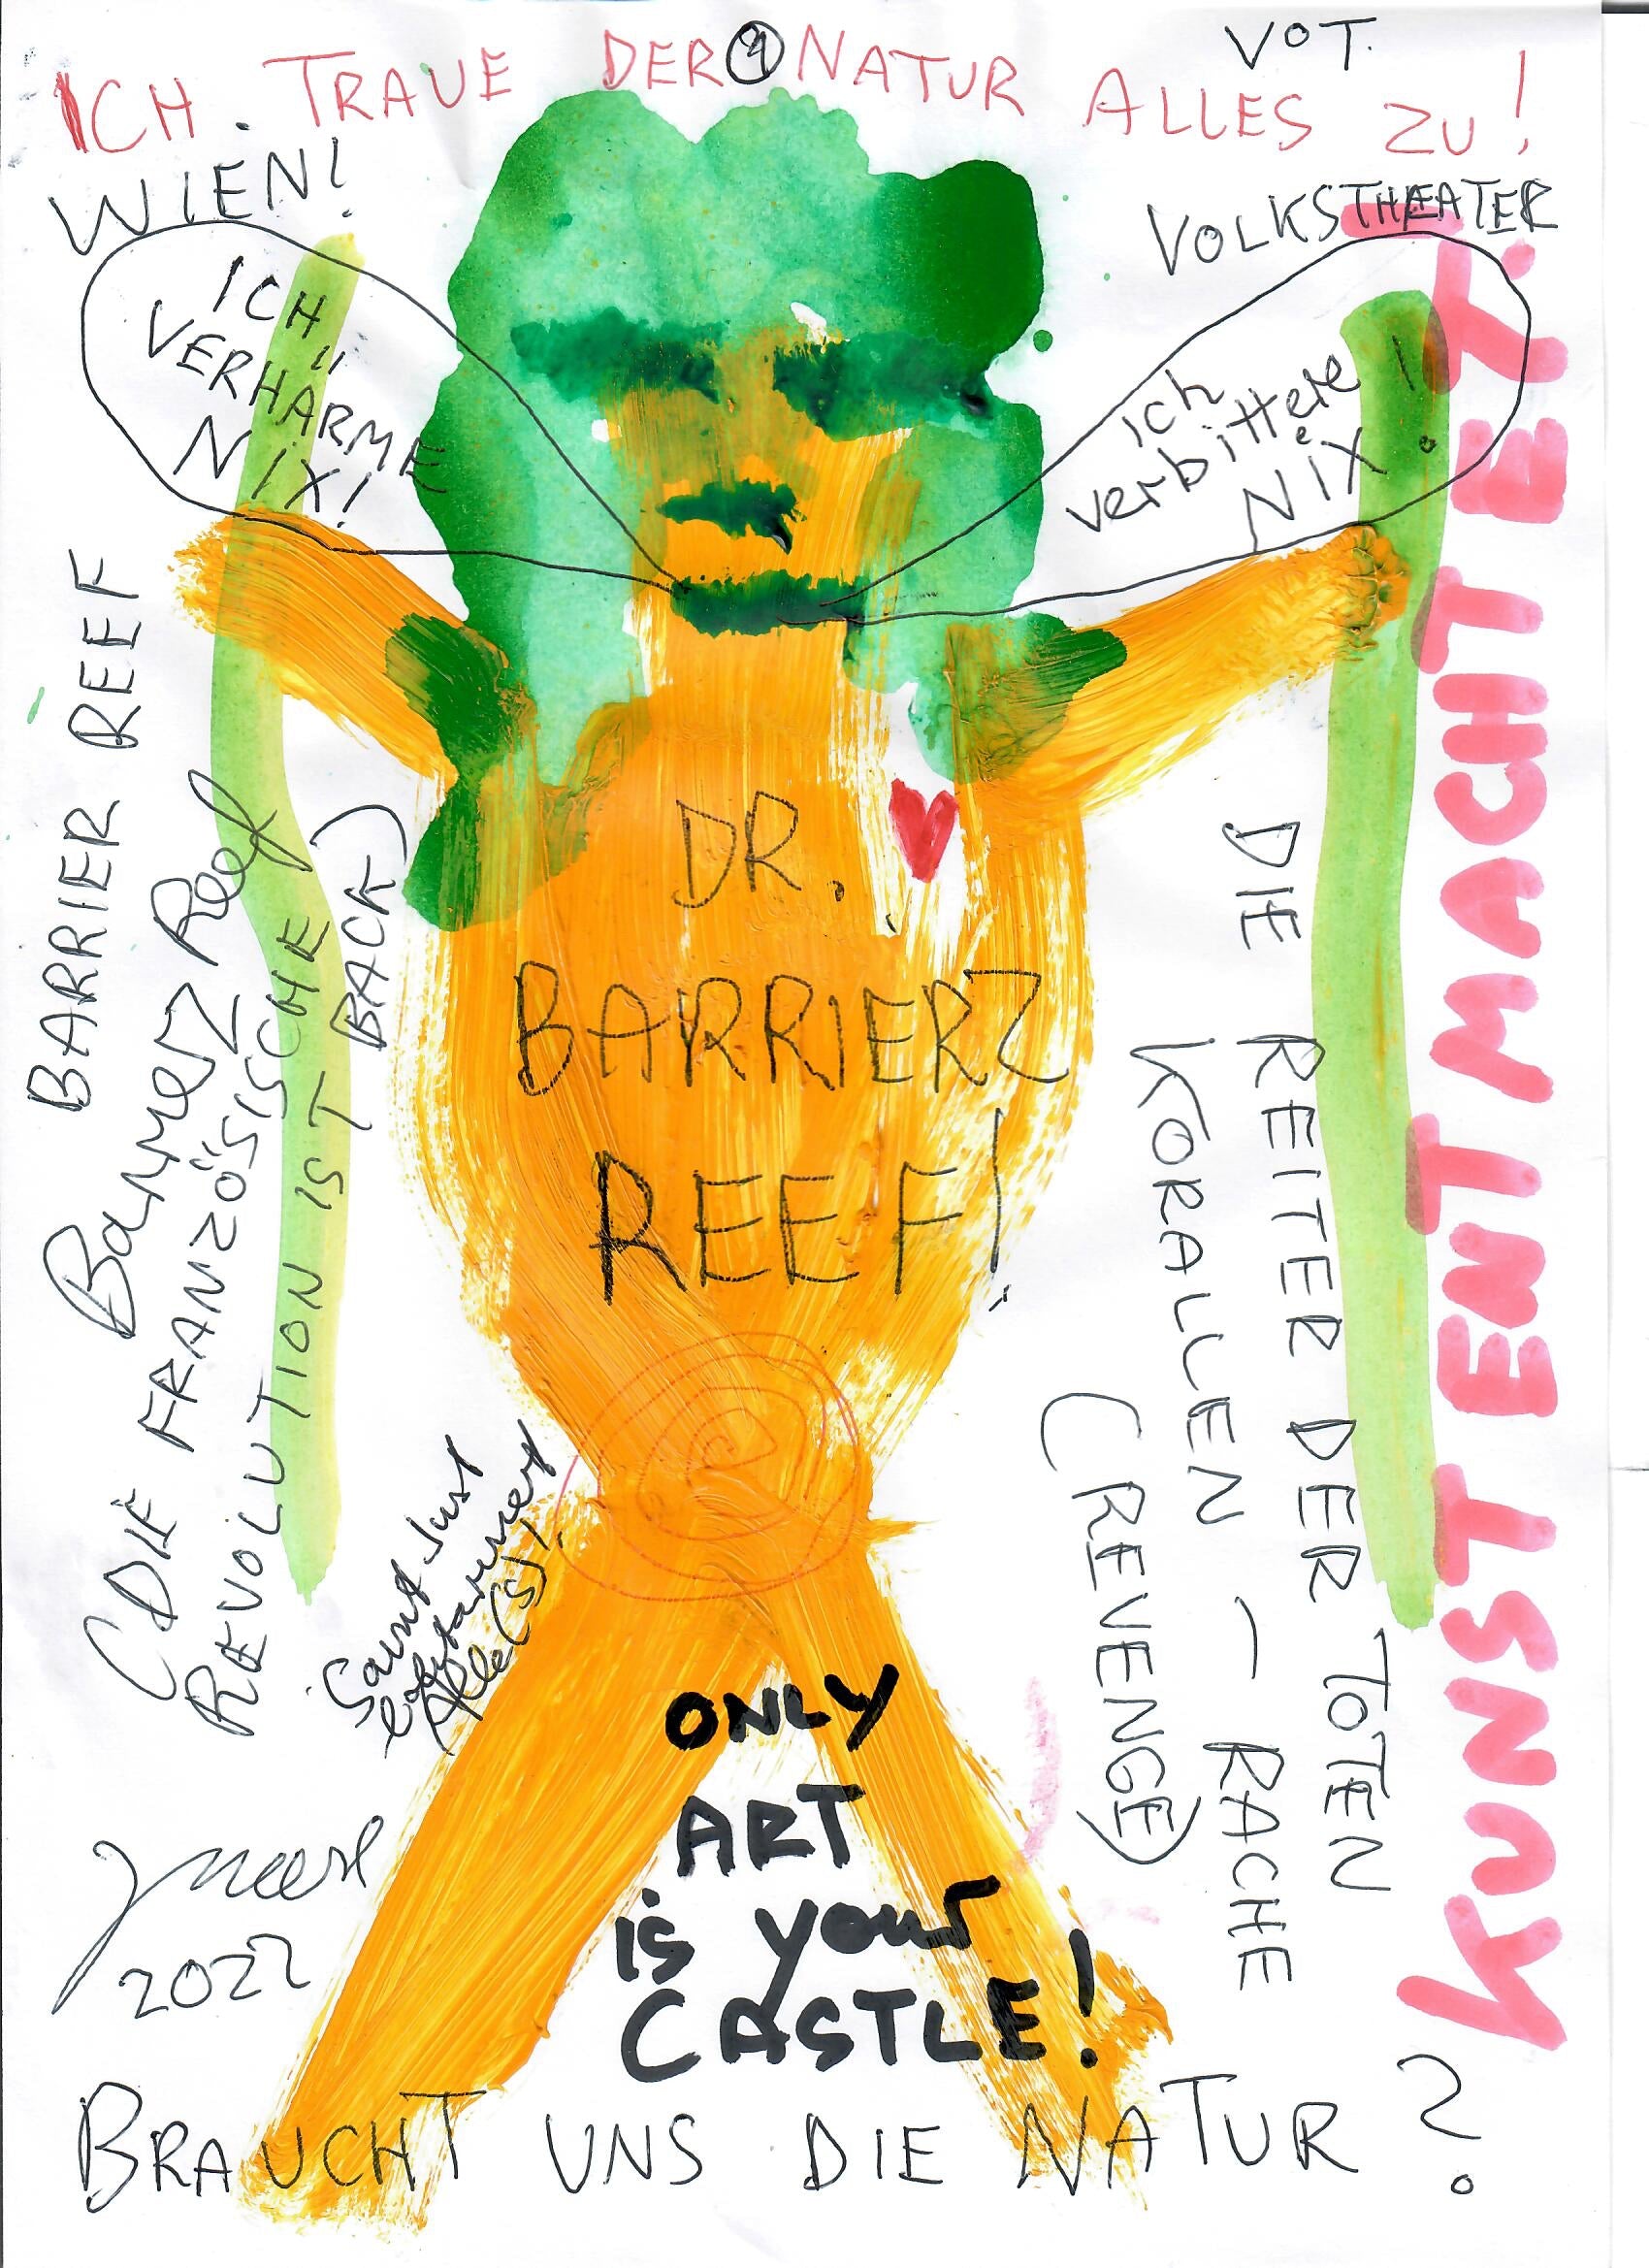 VOT.
ICH. TRAUE DER ④ NATUR ALLES ZU!
WIEN!
VOLKSTHEATER
ICH
VERHÄRME
NIX!
ich
verbittere
NIX!
BARRIER REEF
BarrierZ Reef
(DIE FRANZÖSISCHE
REVOLUTION IST
BACK)
DR.
BARRIERZ
REEF!
DIE REITER DER TOTEN
KORALLEN – RACHE
(REVENGE)
KUNST ENTMACHTET.
Saint Just
Alle(s)!
ONLY
ART
is your
CASTLE!
JMeese
2022
BRAUCHT UNS DIE NATUR?